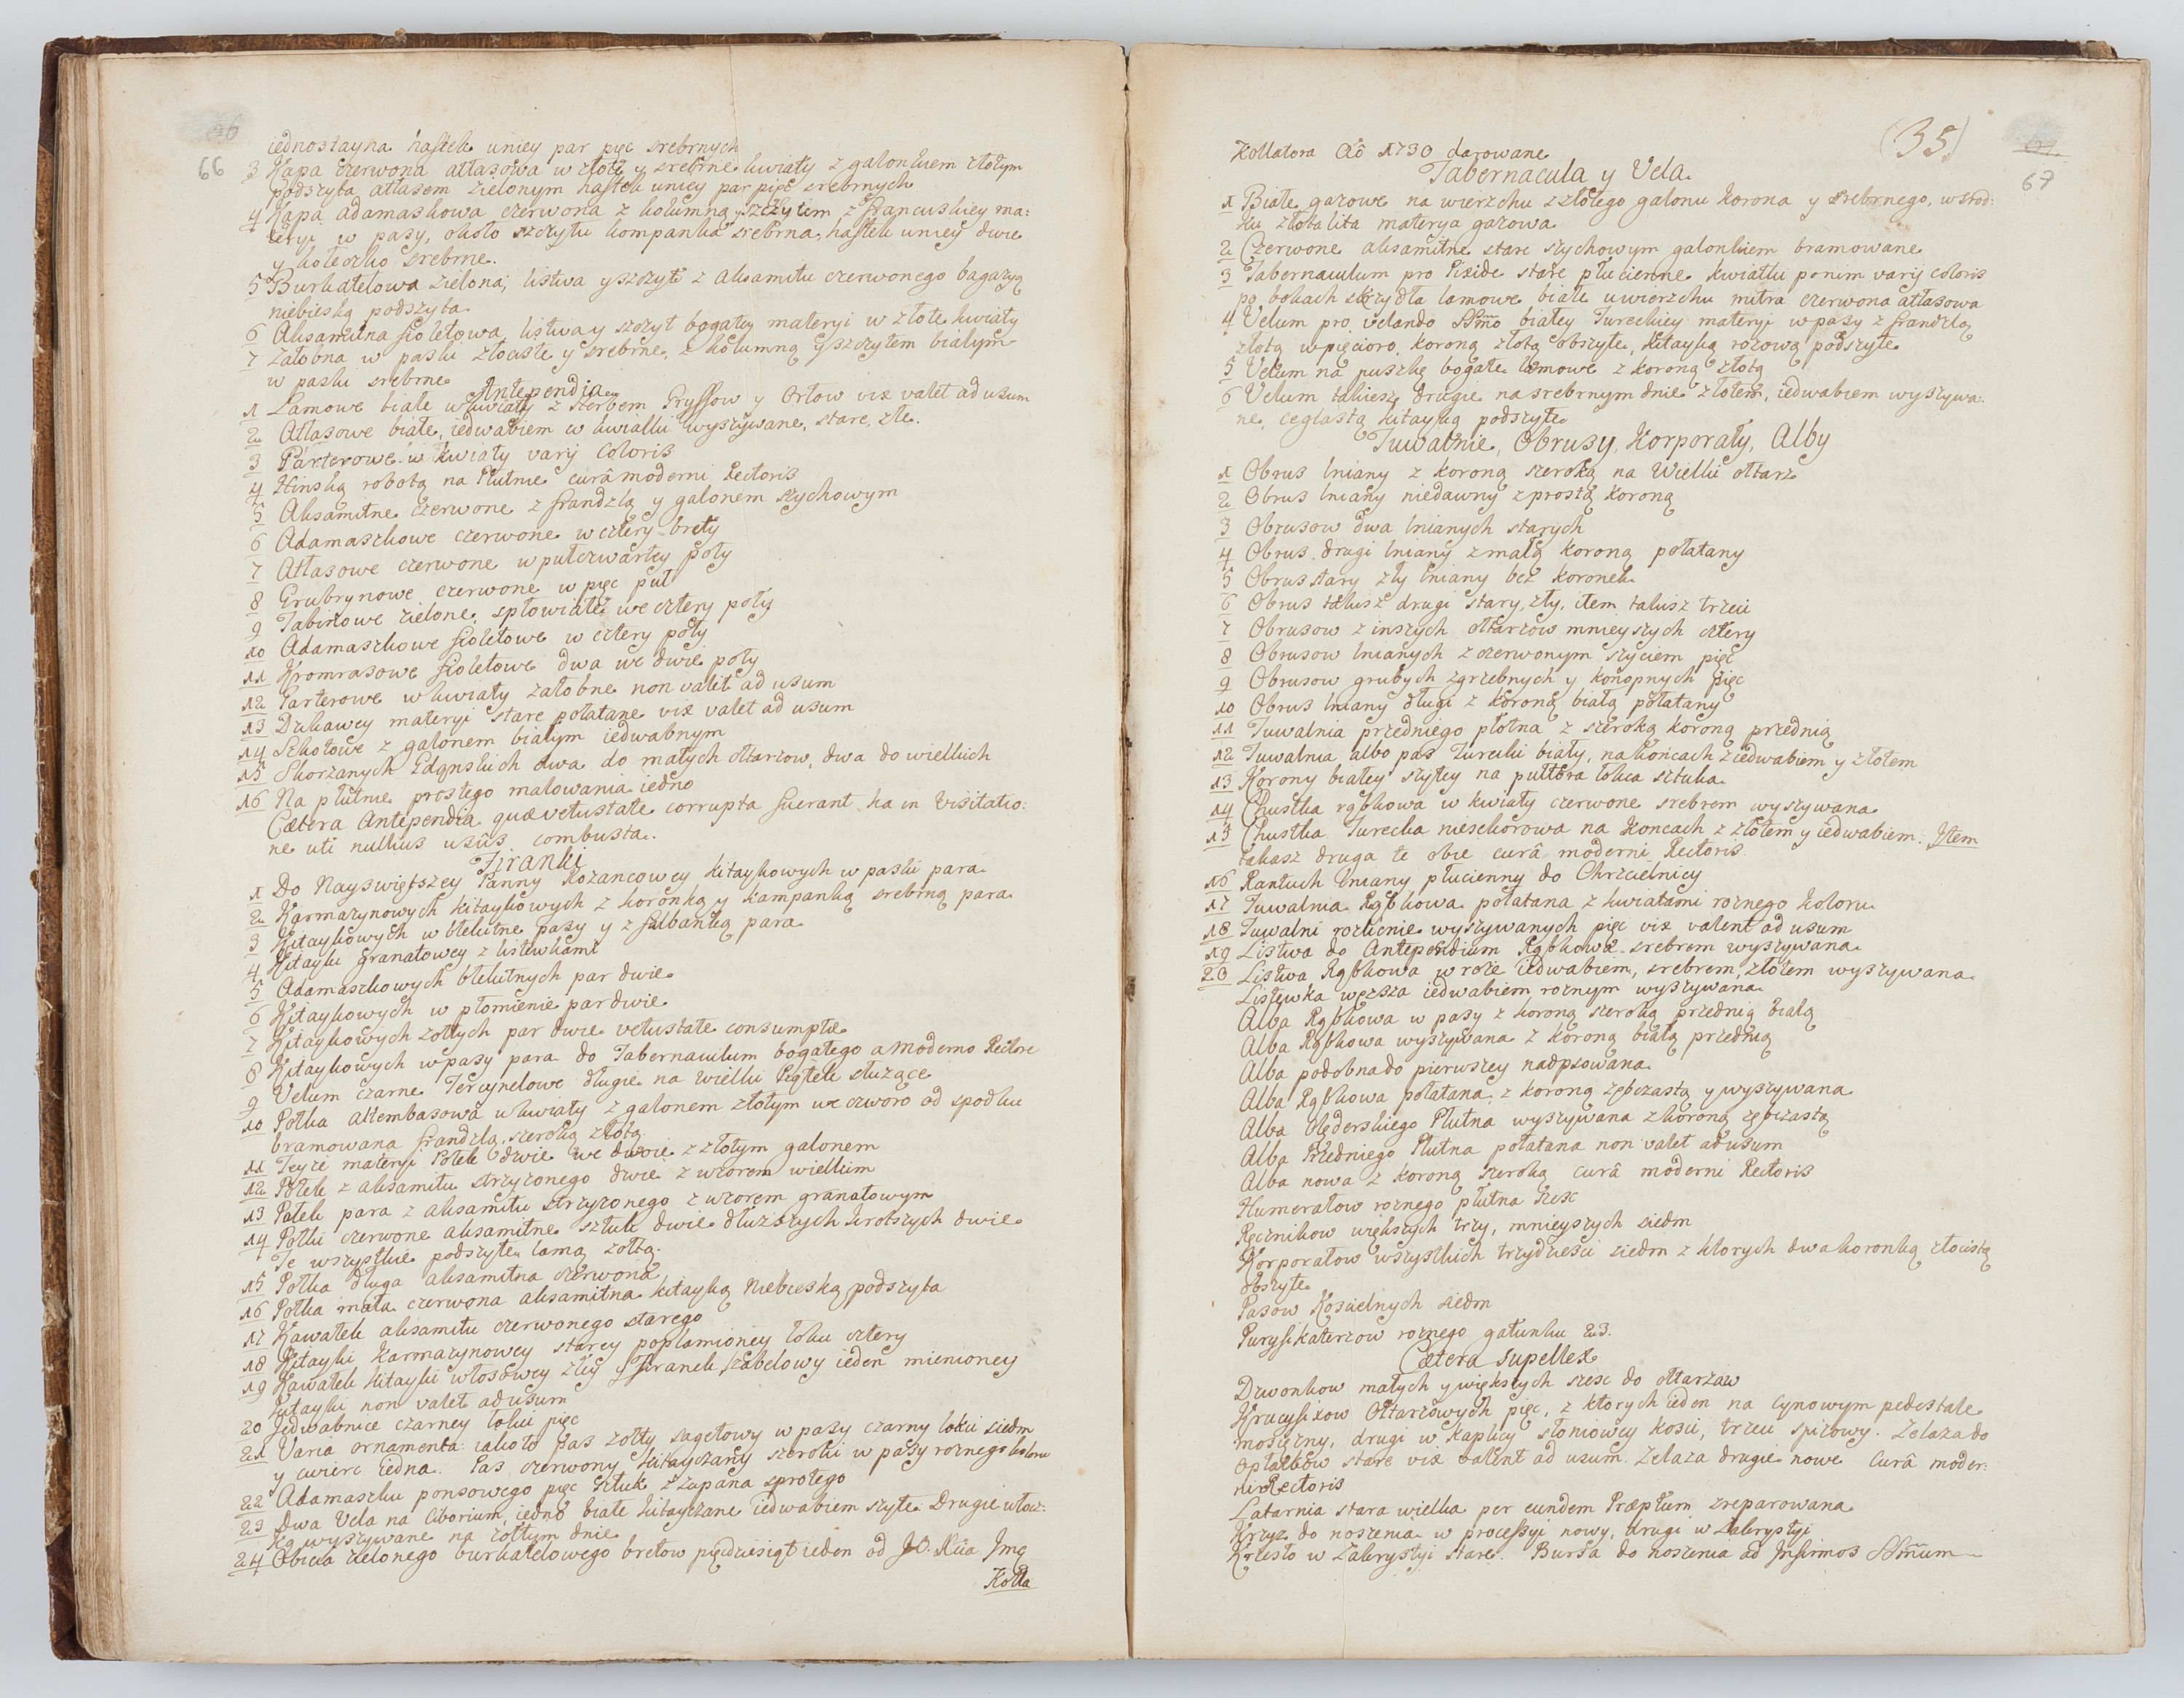 66
iednostayna haftek uniey par pięc srebrnych
3 Kapa czerwona atłasowa w złote y srebrne kwiaty z galonkiem złotym
podszyta atłasem zielonym haftek uniey par pięć srebrnych
4 Kapa adamaszkowa czerwona z kolumną y szczytem z francuskiey ma:
teryi w pasy, około szczytu kompanka srebrna, haftek uniey dwie
y koteczko srebrne.
5 Burkatelowa zielona, listwa y szczyt z Aksamitu czerwonego bagazyą
niebieską podszyta
6 Aksamitna fioletowa, listwa y szczyt bogatey materyi w złote kwiaty
7 Załobna w paski złociste y srebrne, z kolumną y szczytem białym
w paski srebrne
Antependia
1 Lamowe białe w kwiaty z Herbem Gryffow y Orłow vix valet ad usum
2 Atłasowe białe, iedwabiem w kwiatki wyszywane, stare, złe.
3 Parterowe w kwiaty varij Coloris
4 Hinską robotą na Płutnie curâ moderni Rectoris
5 Aksamitne czerwone z frandzlą y galonem szychowym
6 Adamaszkowe czerwone w cztery brety
7 Atłasowe czerwone w pułczwartey poły
8 Grubrynowe czerwone w pięc puł
9 Tabinowe zielone spłowiałe we cztery poły
10 Adamaszkowe fioletowe w cztery poły
11 Kromrasowe fioletowe dwa we dwie poły
12 Parterowe w kwiaty załobne non valet ad usum
13 Dzkawey materyi stare połatane vix valet ad usum
14 Szkotowe z galonem białym iedwabnym
15 Skorzanych Gdąnskich dwa do małych ołtarzow, dwa do wielkich
16 Na płutnie prostego malowania iedno
Cætera Antependia quæ vetustate corrupta fuerant ha in Visitatio:
ne uti nullius usûs combusta.
Firanki
1 Do Nayswiętszey Panny Rozancowey kitaykowych w paski para
2 Karmazynowych kitaykowych z koronką y kampanką srebrną para
3 Kitaykowych w błekitne pasy y z falbanką para
4 Kitayki granatowey z listewkami
5 Adamaszkowych błekitnych par dwie
6 Kitaykowych w płomienie par dwie
7 Kitaykowych zołtych par dwie vetustate consumptæ
8 Kitaykowych w pasy para do Tabernaculum bogatego a Moderno Rectore
9 Velum czarne Tercynelowe długie na wielki Piątek słuzące
10 Połka altembasowa w kwiaty z galonem złotym we czworo od spodku
bramowana frandzlą szeroką złotą
11 Teyze materyi Połek dwie we dwoie z złotym galonem
12 Połek z aksamitu strzyzonego dwie z wzorem wielkim
13 Połek para z aksamitu strzyzonego z wzorem granatowym
14 Połki czerwone aksamitne sztuk dwie dłuzszych krotszych dwie
Te wszystkie podszyte lamą zołtą.
15 Połka długa aksamitna czerwona
16 Połka mała czerwona aksamitna kitayką Niebieską podszyta
17 Kawałek aksamitu czerwonego starego
18 Kitayki karmazynowey starey poplamioney łokci cztery
19 Kawałek kitayki włosowey złey y Firanek szabelowy ieden mienioney
kitayki non valet ad usum
20 Jedwabnice czarney łokci pięc
21 Varia ornamenta: iakoto Pas zołty sagetowy w pasy czarny łokci siedm
y cwierc iedna. Pas czerwony kitayczany szeroki w pasy roznego koloru
22 Adamaszku ponsowego pięc sztuk z zupana sprotego
23 Dwa Vela na Ciborium, iedno białe kitayczane iedwabiem szyte. Drugie włocz:
ką wyszywane na zołtym dnie
24 Obicia zielonego burkatelowego bretow pięcdziesiąt ieden od JO. Xcia Jmę
Kolla
(35)
67
Kollatora Aô 1730 darowane
Tabernacula y Vela.
1 Białe gazowe na wierzchu z złotego galonu korona y srebrnego, wsrod:
ku złotalita materya gazowa
2 Czerwone aksamitne stare szychowym galonkiem bramowane
3 Tabernaculum pro Pixide stare płucienne kwiatki ponim varij coloris
po bokach skrzydła lamowe białe u wierzchu mitra czerwona atłasowa
4 Velum pro velando SSmo białey Tureckiey materyi w pasy z frandzlą
złotą w pięcioro, koroną złotą obszyte, kitayką rozową podszyte
5 Velum na puszkę bogate lamowe z koroną złotą
6 Velum takiesz drugie na srebrnym dnie złotem, iedwabiem wyszywa:
ne, ceglastą kitayką podszyte
Tuwalnie, Obrusy, Korporały, Alby
1 Obrus lniany z koroną szeroką na Wielki ołtarz
2 Obrus lniany niedawny z prostą koroną
3 Obrusow dwa lnianych starych
4 Obrus drugi lniany z małą koroną połatany
5 Obrus stary zły lniany bez koronek
6 Obrus takisz drugi stary, zły, item takisz trzeci
7 Obrusow z inszych ołtarzow mnieyszych cztery
8 Obrusow lnianych z czerwonym szyciem pięc
9 Obrusow grubych zgrzebnych y konopnych pięc
10 Obrus lniany długi z koroną białą połatany
11 Tuwalnia przedniego płotna z szeroką koroną przednią
12 Tuwalnia albo pas Turecki biały, na końcach z iedwabiem y złotem
13 Korony białey szytey na pułtora łokcia sztuka
14 Chustka rąbkowa w kwiaty czerwone srebrem wyszywana
15 Chustka Turecka nieszkorowa na koncach z złotem y iedwabiem. Item
takasz druga te obie curâ moderni Rectoris
16 Rantuch lniany płucienny do Chrzcielnicy
17 Tuwalnia Rąbkowa połatana z kwiatami roznego koloru
18 Tuwalni rozlicznie wyszywanych pięc vix valent ad usum
19 Listwa do Antependium Rąbkowa srebrem wyszywana
20 Listwa Rąbkowa w roze iedwabiem, srebrem, złotem wyszywana
Listewka węzsza iedwabiem roznym wyszywana
Alba Rąbkowa w pasy z koroną szeroką przednią białą
Alba Rąbkowa wyszywana z koroną białą przednią
Alba podobna do pierwszey nadpsowana
Alba Rąbkowa połatana z koroną zębczastą y wyszywana
Alba Olęderskiego Płutna wyszywana z koroną zębczastą
Alba Przedniego Płutna połatana non valet ad usum
Alba nowa z koroną szeroką curâ moderni Rectoris
Humerałow roznego płutna szesc
Ręcznikow większych trzy, mnieyszych siedm
Korporałow wszystkich trzydziesci siedm z ktorych dwa koronką złocistą
obszyte
Pasow Koscielnych siedm
Puryfikaterzow roznego gatunku 23.
Cætera supellex
Dzwonkow małych y większych szesc do ołtarzów
Krucyfixow Ołtarzowych pięc, z ktorych ieden na cynowym pedestale
mosięzny, drugi w Kaplicy słoniowey kosci, trzeci spizowy. Zelaza do
Opłatkow stare vix valent ad usum. Zelaza drugie nowe Curâ moder:
ni Rectoris
Latarnia stara wielka per eundem Præptum zreparowana
Krzyz do noszenia w processyi nowy, drugi w Zakrystyi
Krzesło w Zakrystyi stare. Bursa do noszenia ad Infirmos SSmum